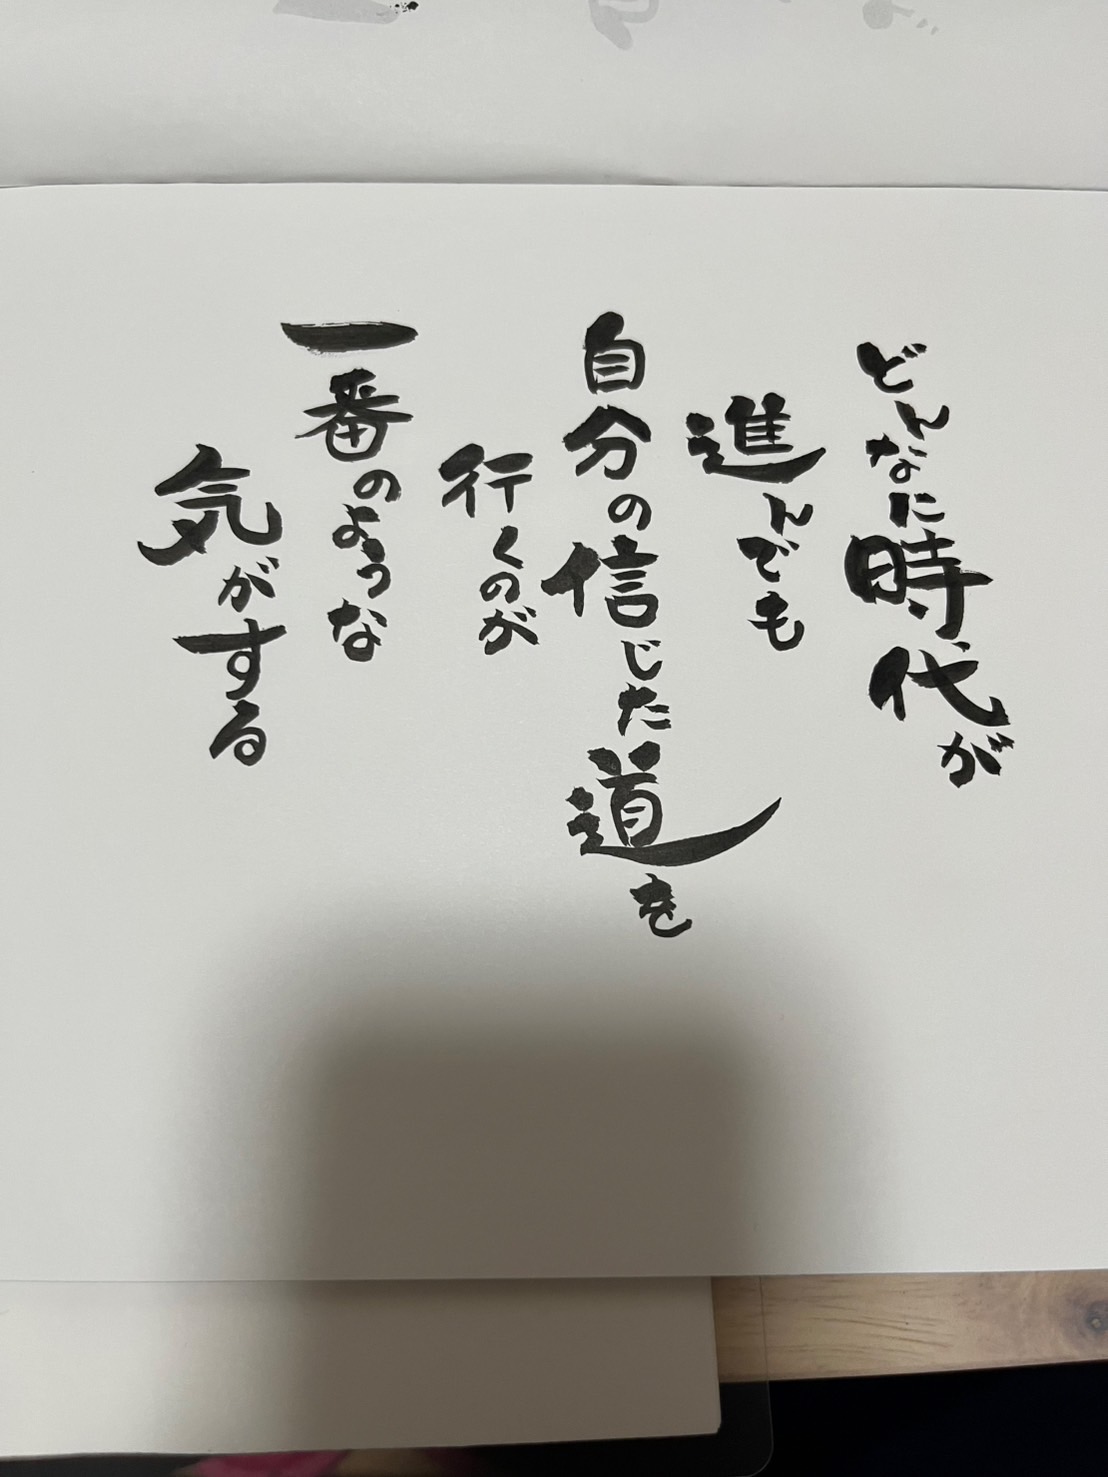 どんなに時代が
進んでも
自分の信じた道を
行くのが
一番のような
気がする